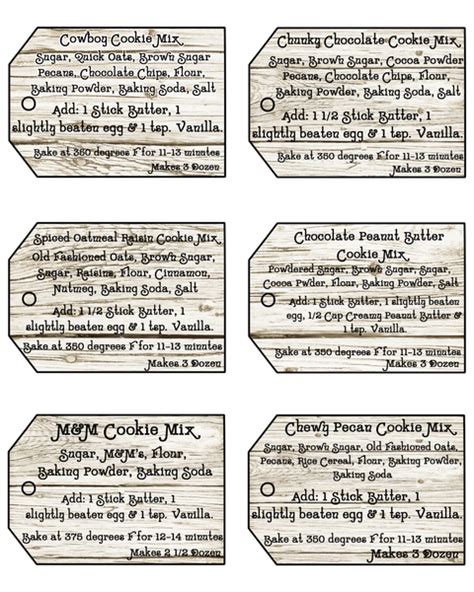 Cowboy Cookie Mix
Sugar, Quick Oats, Brown Sugar
Pecans, Chocolate Chips, Flour,
Baking Powder, Baking Soda, Salt
Add: 1 Stick Butter, 1
slightly beaten egg & 1 tsp. Vanilla.
Bake at 350 degrees F for 11-13 minutes
Makes 3 Dozen
Chunky Chocolate Cookie Mix
Sugar, Brown Sugar, Cocoa Powder
Pecans, Chocolate Chips, Flour,
Baking Powder, Baking Soda, Salt
Add: 1 1/2 Stick Butter, 1
slightly beaten egg & 1 tsp. Vanilla.
Bake at 350 degrees F for 11-13 minutes
Makes 3 Dozen
Spiced Oatmeal Raisin Cookie Mix
Old Fashioned Oats, Brown Sugar,
Sugar, Raisins, Flour, Cinnamon,
Nutmeg, Baking Soda, Salt
Add: 1 1/2 Stick Butter, 1
slightly beaten egg & 1 tsp. Vanilla.
Bake at 350 degrees F for 11-13 minutes
Makes 3 Dozen
Chocolate Peanut Butter
Cookie Mix
Powdered Sugar, Brown Sugar, Sugar,
Cocoa Pwder, Flour, Baking Powder, Salt
Add: 1 Stick Butter, 1 slightly beaten
egg, 1/2 Cup Creamy Peanut Butter &
1 tsp. Vanilla.
Bake at 350 degrees F for 11-13 minutes
Makes 3 Dozen
M&M Cookie Mix
Sugar, M&M's, Flour,
Baking Powder, Baking Soda
Add: 1 Stick Butter, 1
slightly beaten egg & 1 tsp. Vanilla.
Bake at 375 degrees F for 12-14 minutes
Makes 2 1/2 Dozen
Chewy Pecan Cookie Mix
Sugar, Brown Sugar, Old Fashioned Oats,
Pecans, Rice Cereal, Flour, Baking Powder,
Baking Soda
Add: 1 Stick Butter, 1
slightly beaten egg & 1 tsp. Vanilla.
Bake at 350 degrees F for 11-13 minutes
Makes 3 Dozen